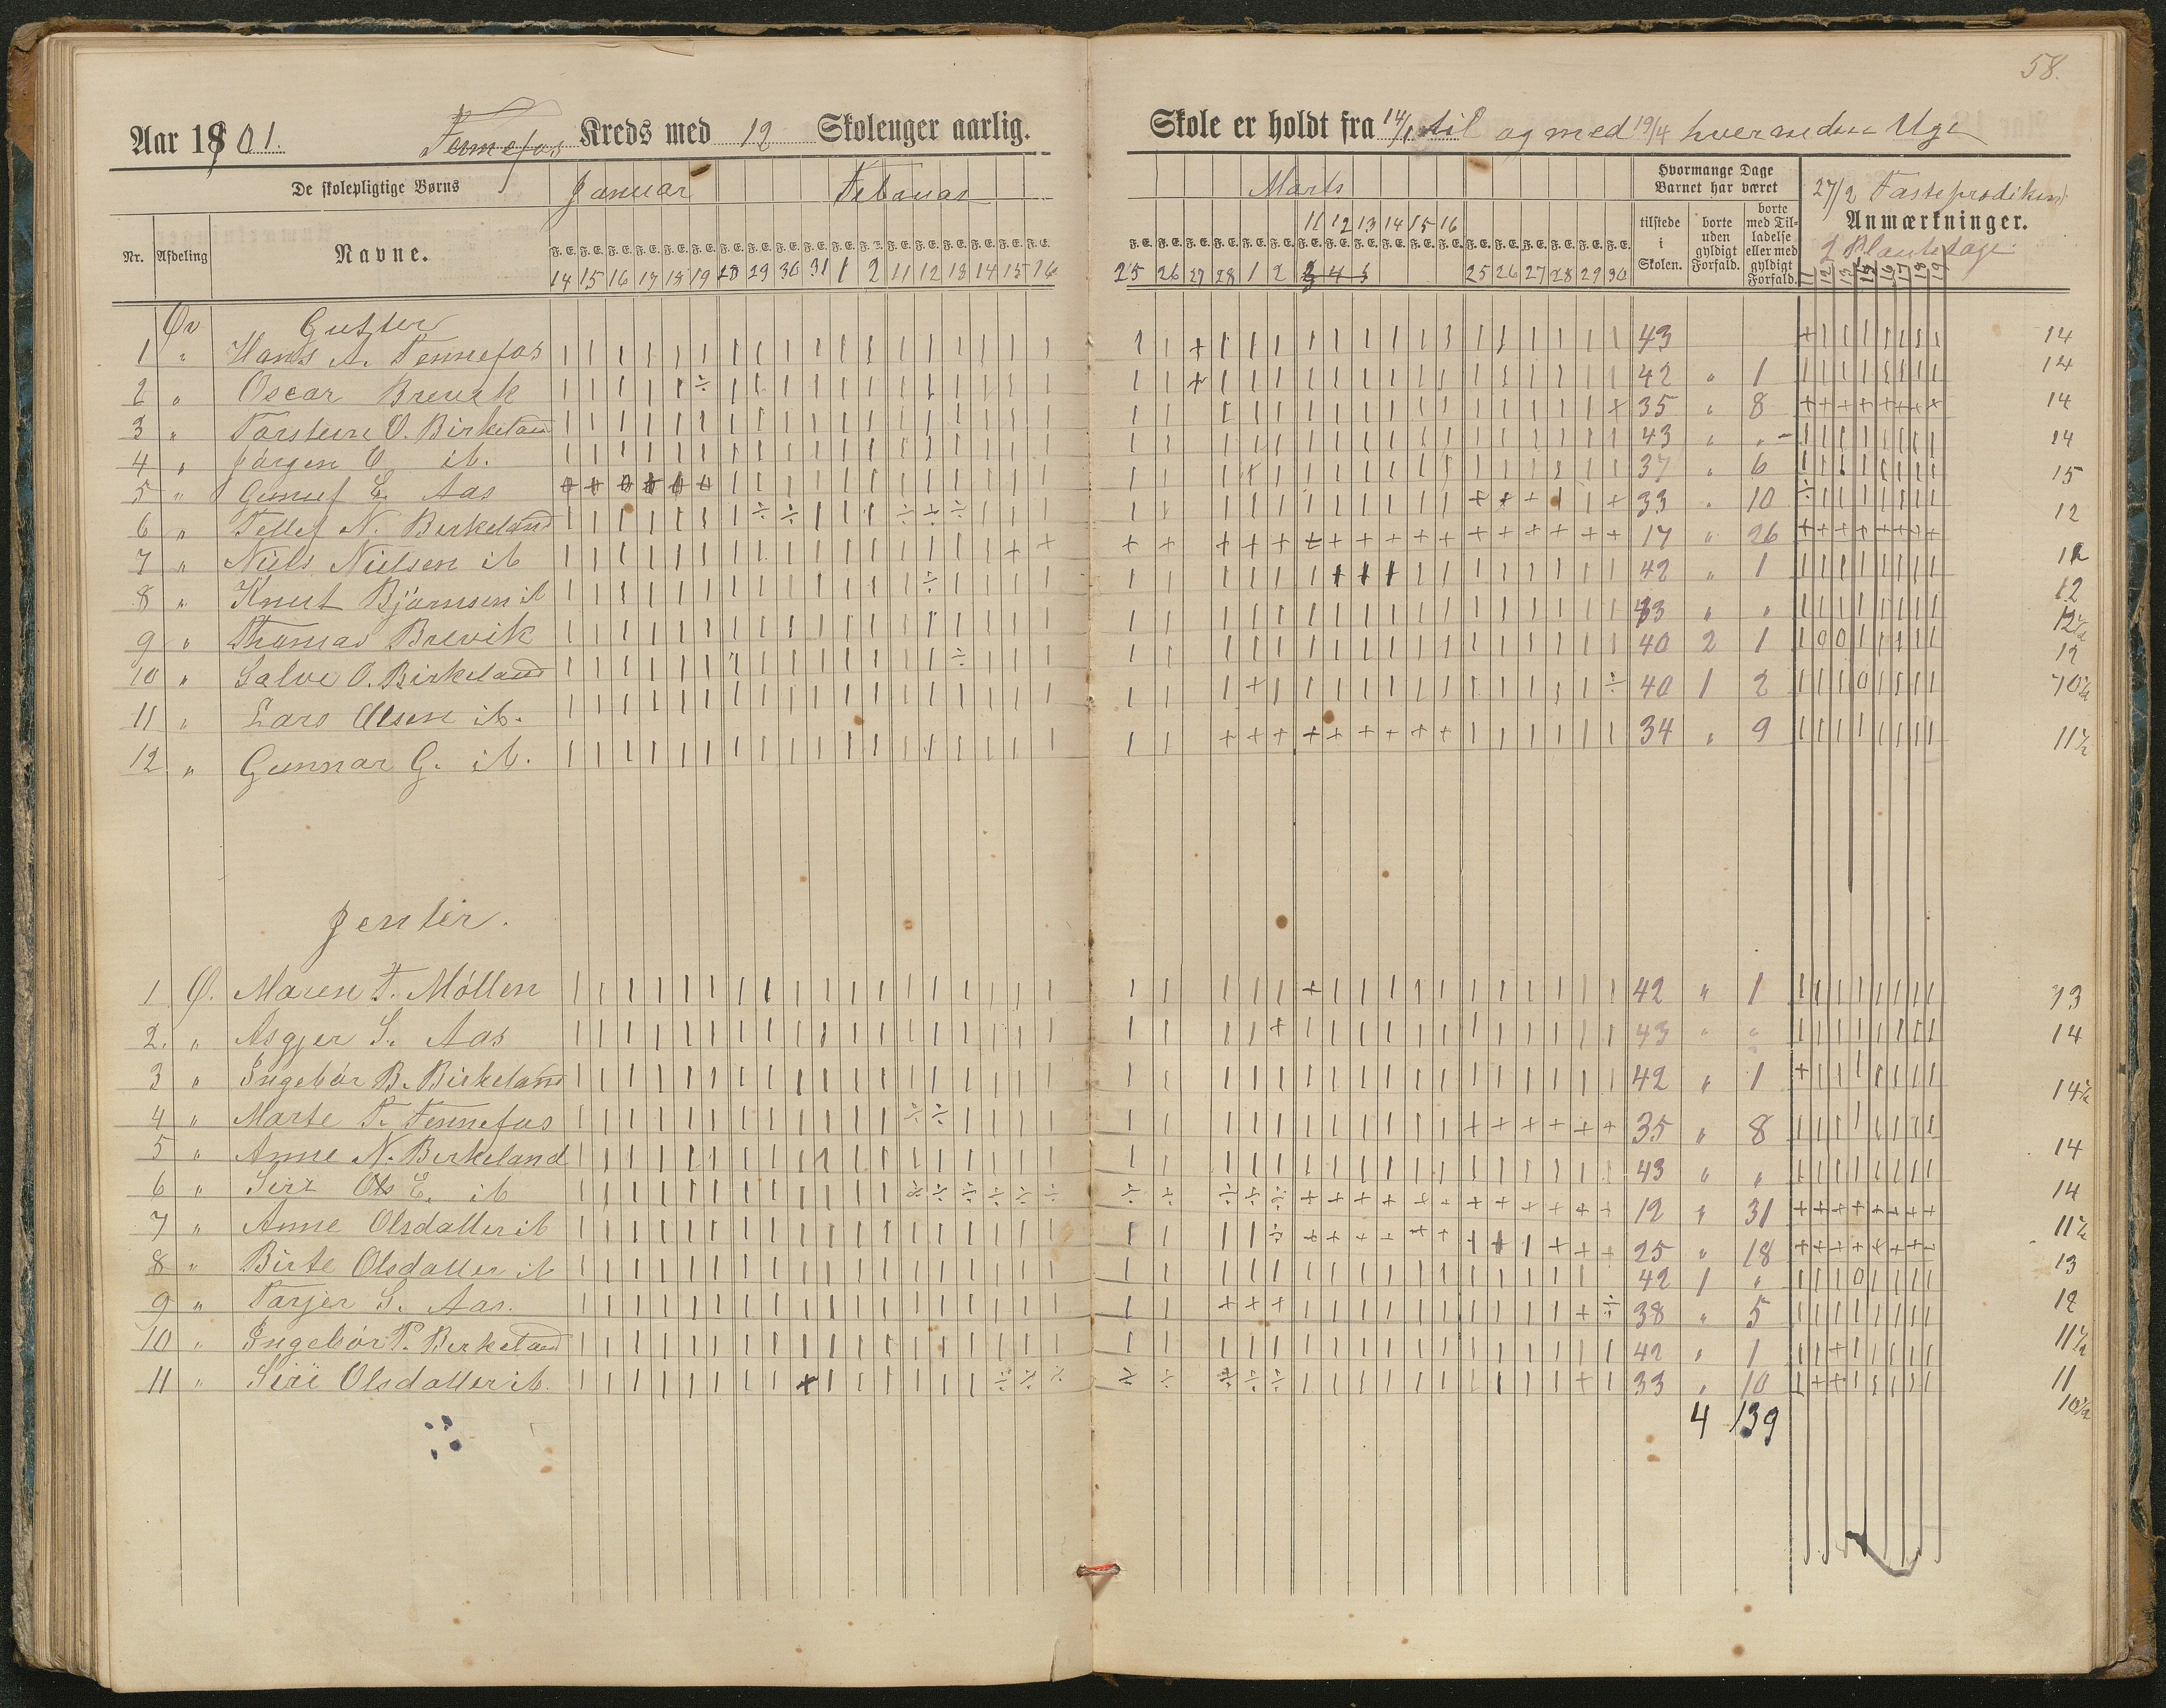 58.
Aar 1901. Tennefos Kreds med 12 Skoleuger aarlig.
Skole er holdt fra 14/1 til og med 19/4 hver anden Uge
De skolepligtige Børns
Januar Februar
Marts
Hvormange Dage Barnet har været
27/2 Fasteprædiken
Nr. Afdeling Navne.
tilstede i Skolen.
borte uden gyldigt Forfald.
borte med Tilladelse eller med gyldigt Forfald.
Anmærkninger.
2 Plantedage
11 12 13 14 15 16
F. E. F. E. F. E. F. E. F. E. F. E. F. E. F. E. F. E. F. E. F. E. F. E. F. E. F. E. F. E. F. E. F. E. F. E.
14 15 16 17 18 19 28 29 30 31 1 2 11 12 13 14 15 16
25 26 27 28 1 2 3 4 5 25 26 27 28 29 30
11 12 13 15 16 17 18 19
Øv Gutter
1 " Hans A. Tennefos 43 14
2 " Oscar Brevik 42 " 1 14
3 " Torstein O. Birkeland 35 " 8 14
4 " Jørgen O ib. 43 " " 14
5 " Gunuf E. Aas 37 " 6 15
6 " Tellef N. Berkeland 33 " 10 12
7 " Niels Nielsen ib 17 " 26 12
8 " Knut Bjørnsen ib 42 " 1 12
9 " Thomas Brevik 43 " " 12½
10 " Salve O. Birkeland 40 2 1 12
11 " Lars Olsen ib. 40 1 2 10½
12 " Gunnar G. ib. 34 " 9 11½
Jenter.
1 Ø. Maren T. Møllen 42 " 1 13
2. " Asgjer S. Aas 43 " " 14
3 " Ingebør B. Birkeland 42 " 1 14½
4 " Marte T. Tennefos 35 " 8 14
5 " Anne N. Berkeland 43 " " 14
6 " Siri Ols E. ib 12 " 31 11½
7 " Anne Olsdatter ib 25 " 18 13
8 " Birte Olsdatter ib 42 1 " 12
9 " Torjer S. Aas. 38 " 5 11½
10 " Ingebør T. Berkeland 42 " 1 11
11 " Siri Olsdatter ib. 33 " 10 10½
4 139